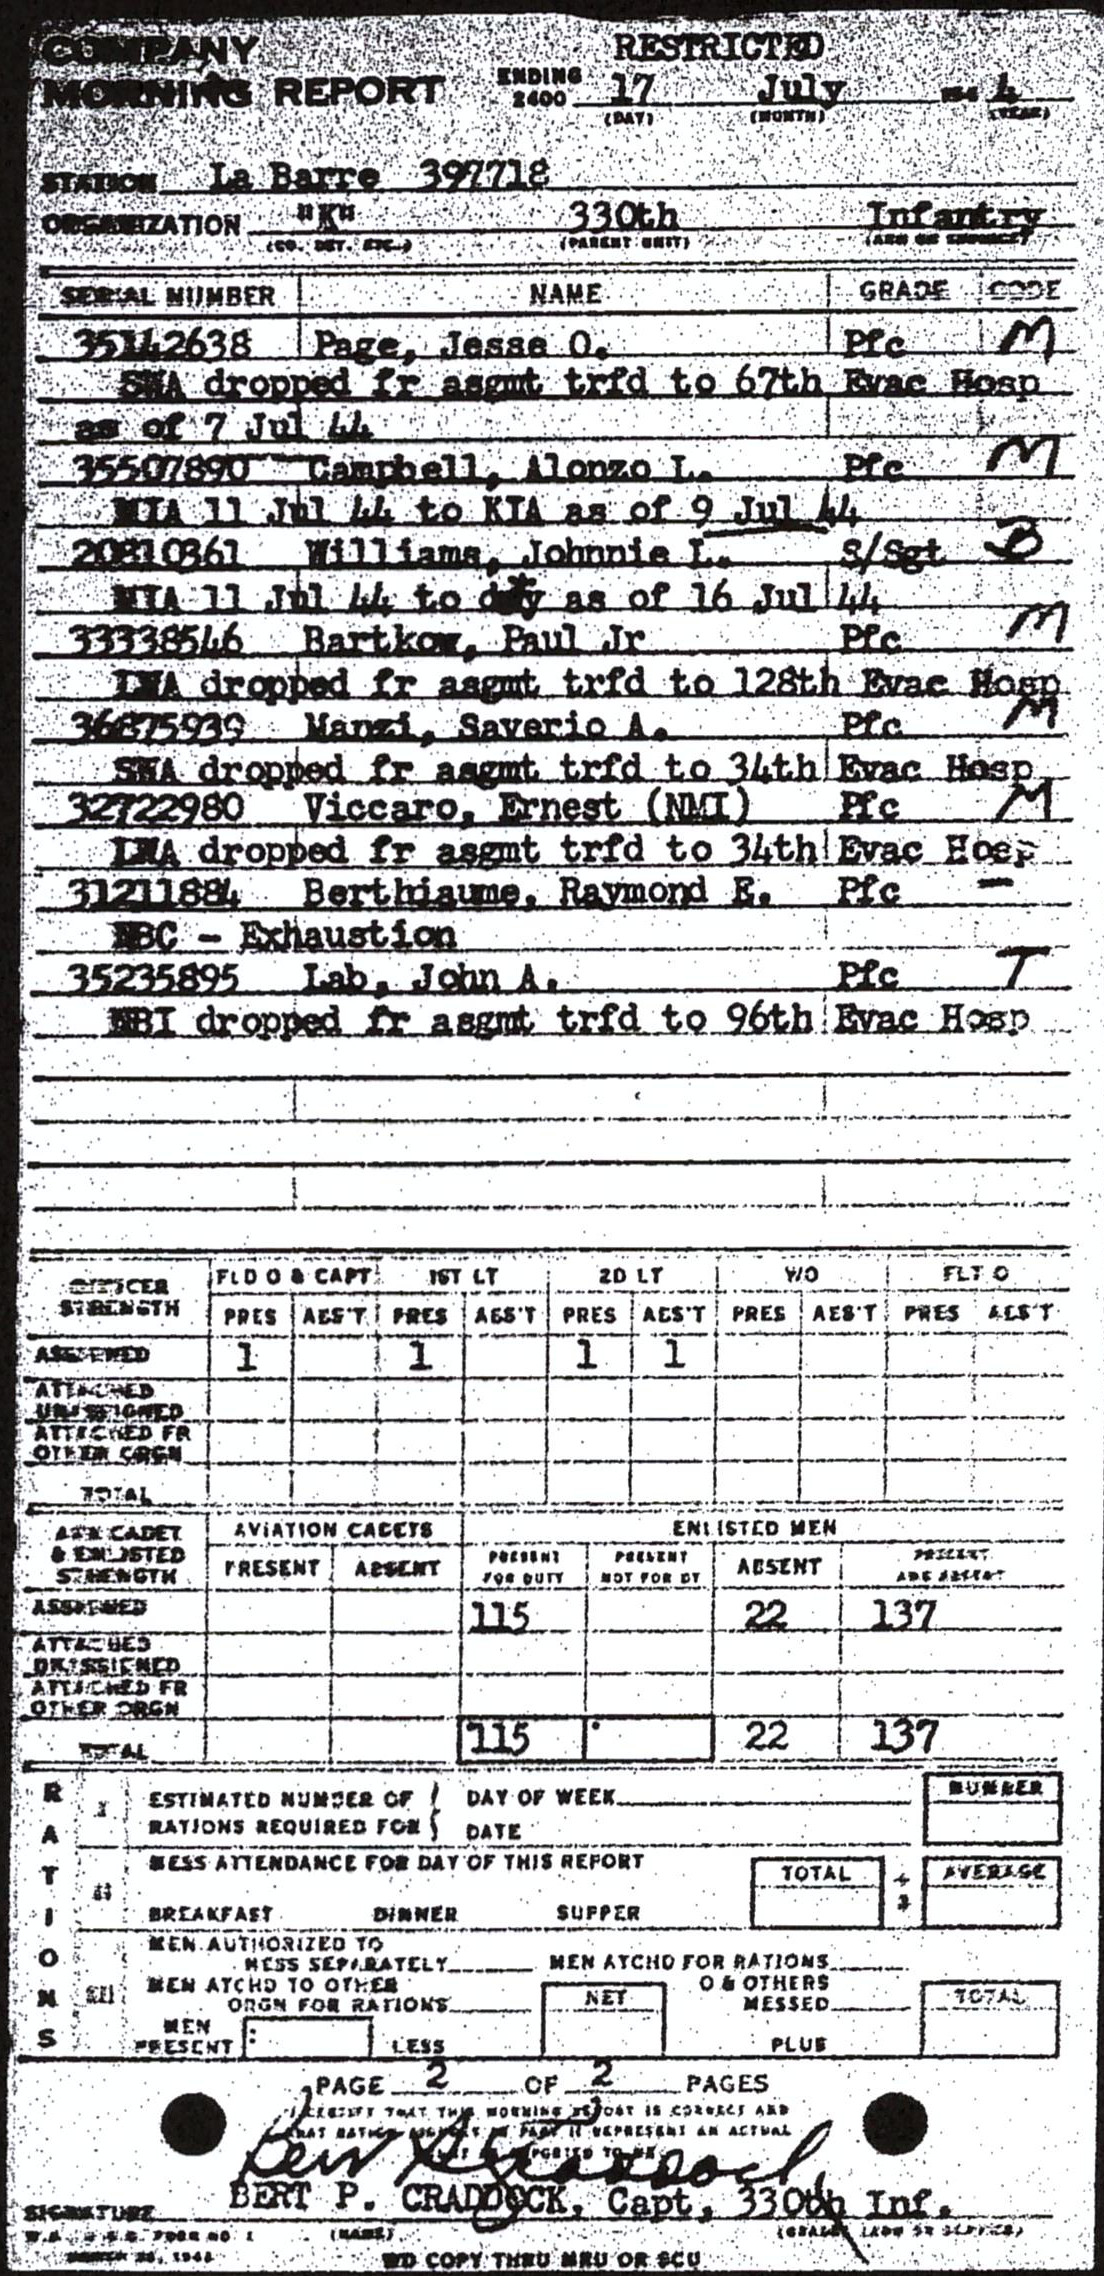 COMPANY RESTRICTED
MORNING REPORT ENDING 2400 17 July 194 4
(DAY) (MONTH) (YEAR)
STATION La Barre 397718
ORGANIZATION "K" 330th Infantry
(CO. DET. ETC.) (PARENT UNIT) (ARM OR SERVICE)
SERIAL NUMBER NAME GRADE CODE
35142638 Page, Jesse O. Pfc M
SWA dropped fr asgmt trfd to 67th Evac Hosp
as of 7 Jul 44
35507890 Campbell, Alonzo L. Pfc M
MIA 11 Jul 44 to KIA as of 9 Jul 44
20810361 Williams, Johnnie L. S/Sgt B
MIA 11 Jul 44 to dty as of 16 Jul 44
33338546 Bartkow, Paul Jr Pfc M
LWA dropped fr asgmt trfd to 128th Evac Hosp
36875939 Manzi, Saverio A. Pfc M
SWA dropped fr asgmt trfd to 34th Evac Hosp
32722980 Viccaro, Ernest (NMI) Pfc M
LWA dropped fr asgmt trfd to 34th Evac Hosp
31211884 Berthiaume, Raymond E. Pfc —
NBC - Exhaustion
35235895 Lab, John A. Pfc T
NBI dropped fr asgmt trfd to 96th Evac Hosp
OFFICER STRENGTH FLD O & CAPT 1ST LT 2D LT W/O FLT O
PRES ABS'T PRES ABS'T PRES ABS'T PRES ABS'T PRES ABS'T
ASSIGNED 1 1 1 1
ATTACHED UNASSIGNED
ATTACHED FR OTHER ORGN
TOTAL
AVN CADET & ENLISTED STRENGTH AVIATION CADETS ENLISTED MEN
PRESENT ABSENT PRESENT FOR DUTY PRESENT NOT FOR DY ABSENT PRESENT AND ABSENT
ASSIGNED 115 22 137
ATTACHED UNASSIGNED
ATTACHED FR OTHER ORGN
TOTAL 115 22 137
RATIONS
I ESTIMATED NUMBER OF DAY OF WEEK NUMBER
RATIONS REQUIRED FOR DATE
II MESS ATTENDANCE FOR DAY OF THIS REPORT TOTAL ÷ 3 AVERAGE
BREAKFAST DINNER SUPPER
III MEN AUTHORIZED TO
MESS SEPARATELY MEN ATCHD FOR RATIONS
MEN ATCHD TO OTHER NET O & OTHERS
ORGN FOR RATIONS MESSED TOTAL
MEN PRESENT LESS PLUS
PAGE 2 OF 2 PAGES
I CERTIFY THAT THIS MORNING REPORT IS CORRECT AND
BERT P. CRADDOCK, Capt, 330th Inf.
SIGNATURE
(NAME) (GRADE) (ARM OR SERVICE)
WD COPY THRU MRU OR SCU